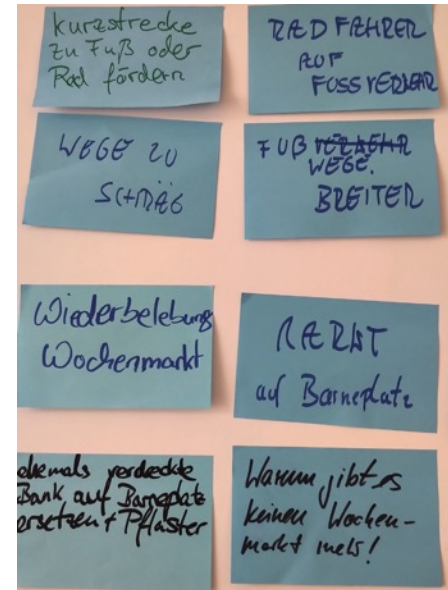 Kurzstrecke
zu Fuß oder
Rad fördern
RADFAHRER
AUF
FUSSVERKEHR
WEGE ZU
SCHRÄG
FUß VERKEHR
WEGE.
BREITER
Wiederbelebung
Wochenmarkt
MARKT
auf Barneplatz
ehemals verdeckte
Bank auf Barneplatz
ersetzen + Pflaster
Warum gibt es
keinen Wochen-
markt mehr!